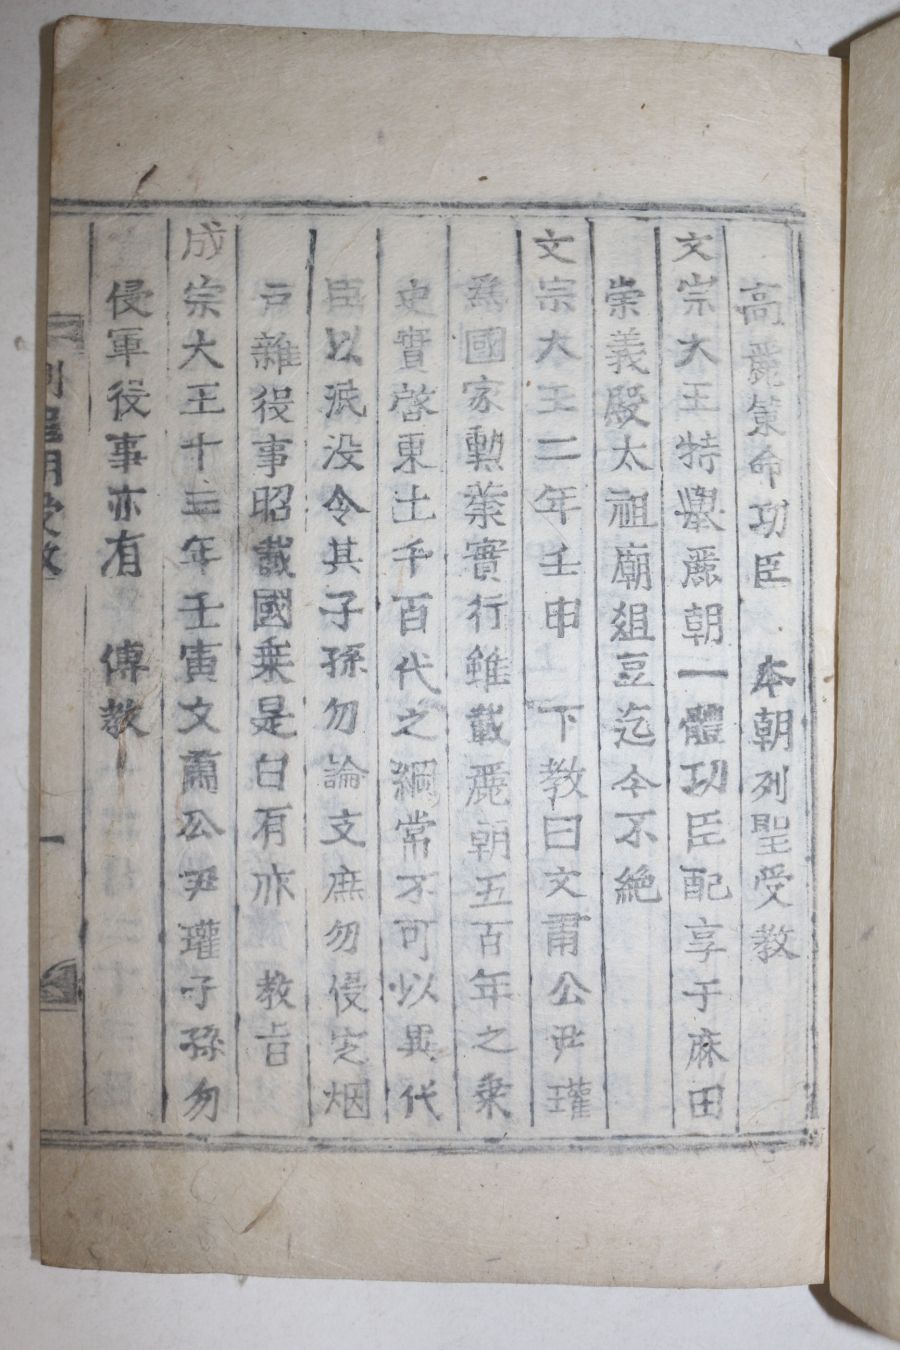 高麗策命功臣 本朝列聖受教
文宗大王特擧麗朝一體功臣配享于麻田
崇義殿太祖廟俎豆迄今不絶
文宗大王二年壬申 下教曰文肅公尹瓘
爲國家勲業實行雖載麗朝五百年之乗
史實啓東土千百代之綱常不可以異代
臣以泯没令其子孫勿論支庶勿侵定烟
戸雜役事昭載國乗是白有亦 教旨
成宗大王十三年壬寅文肅公尹瓘子孫勿
侵軍役事亦有 傳教
列聖朝受教
一